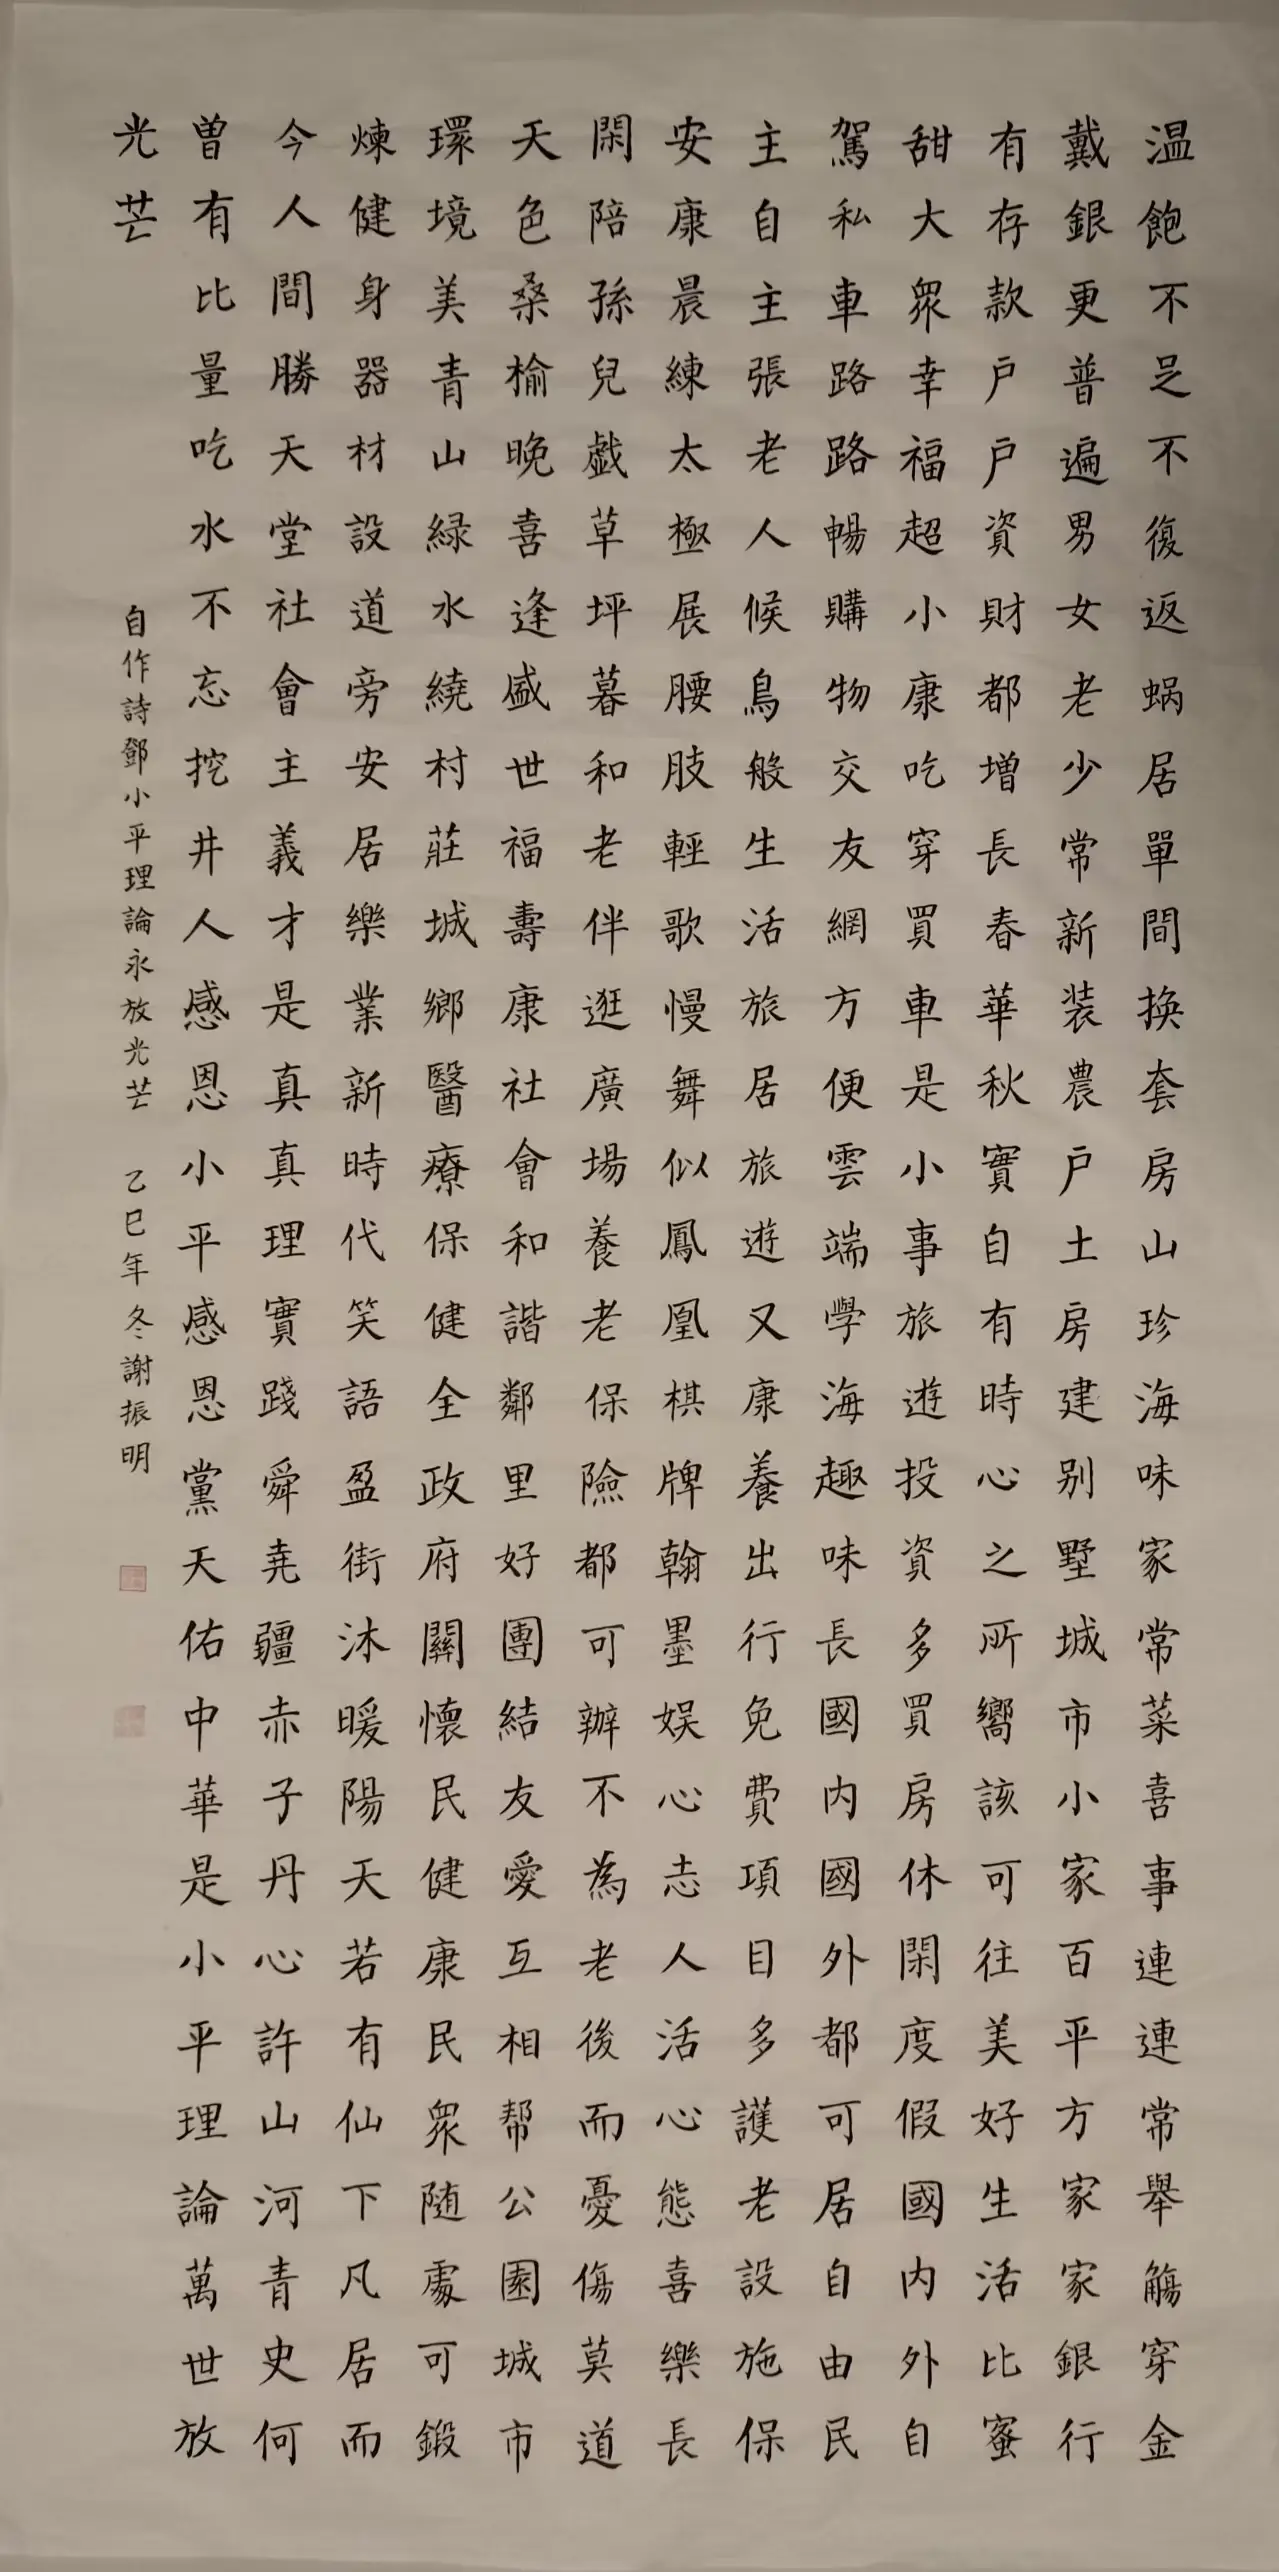 温飽不足不復返蜗居單間換套房山珍海味家常菜喜事連連常舉觴穿金
戴銀更普遍男女老少常新装農户土房建别墅城市小家百平方家家銀行
有存款户户資財都增長春華秋實自有時心之所嚮該可往美好生活比蜜
甜大眾幸福超小康吃穿買車是小事旅遊投資多買房休閑度假國内外自
駕私車路路暢購物交友網方便雲端學海趣味長國内國外都可居自由民
主自主張老人候鳥般生活旅居旅遊又康養出行免費項目多護老設施保
安康晨練太極展腰肢輕歌慢舞似鳳凰棋牌翰墨娱心志人活心態喜樂長
閑陪孫兒戲草坪暮和老伴逛廣場養老保險都可辦不為老後而憂傷莫道
天色桑榆晚喜逢盛世福壽康社會和諧鄰里好團結友愛互相帮公園城市
環境美青山緑水繞村莊城鄉醫療保健全政府關懷民健康民眾随處可鍛
煉健身器材設道旁安居樂業新時代笑語盈街沐暖陽天若有仙下凡居而
今人間勝天堂社會主義才是真真理實踐舜尭疆赤子丹心許山河青史何
曾有比量吃水不忘挖井人感恩小平感恩黨天佑中華是小平理論萬世放
光芒
自作詩鄧小平理論永放光芒 乙巳年冬謝振明